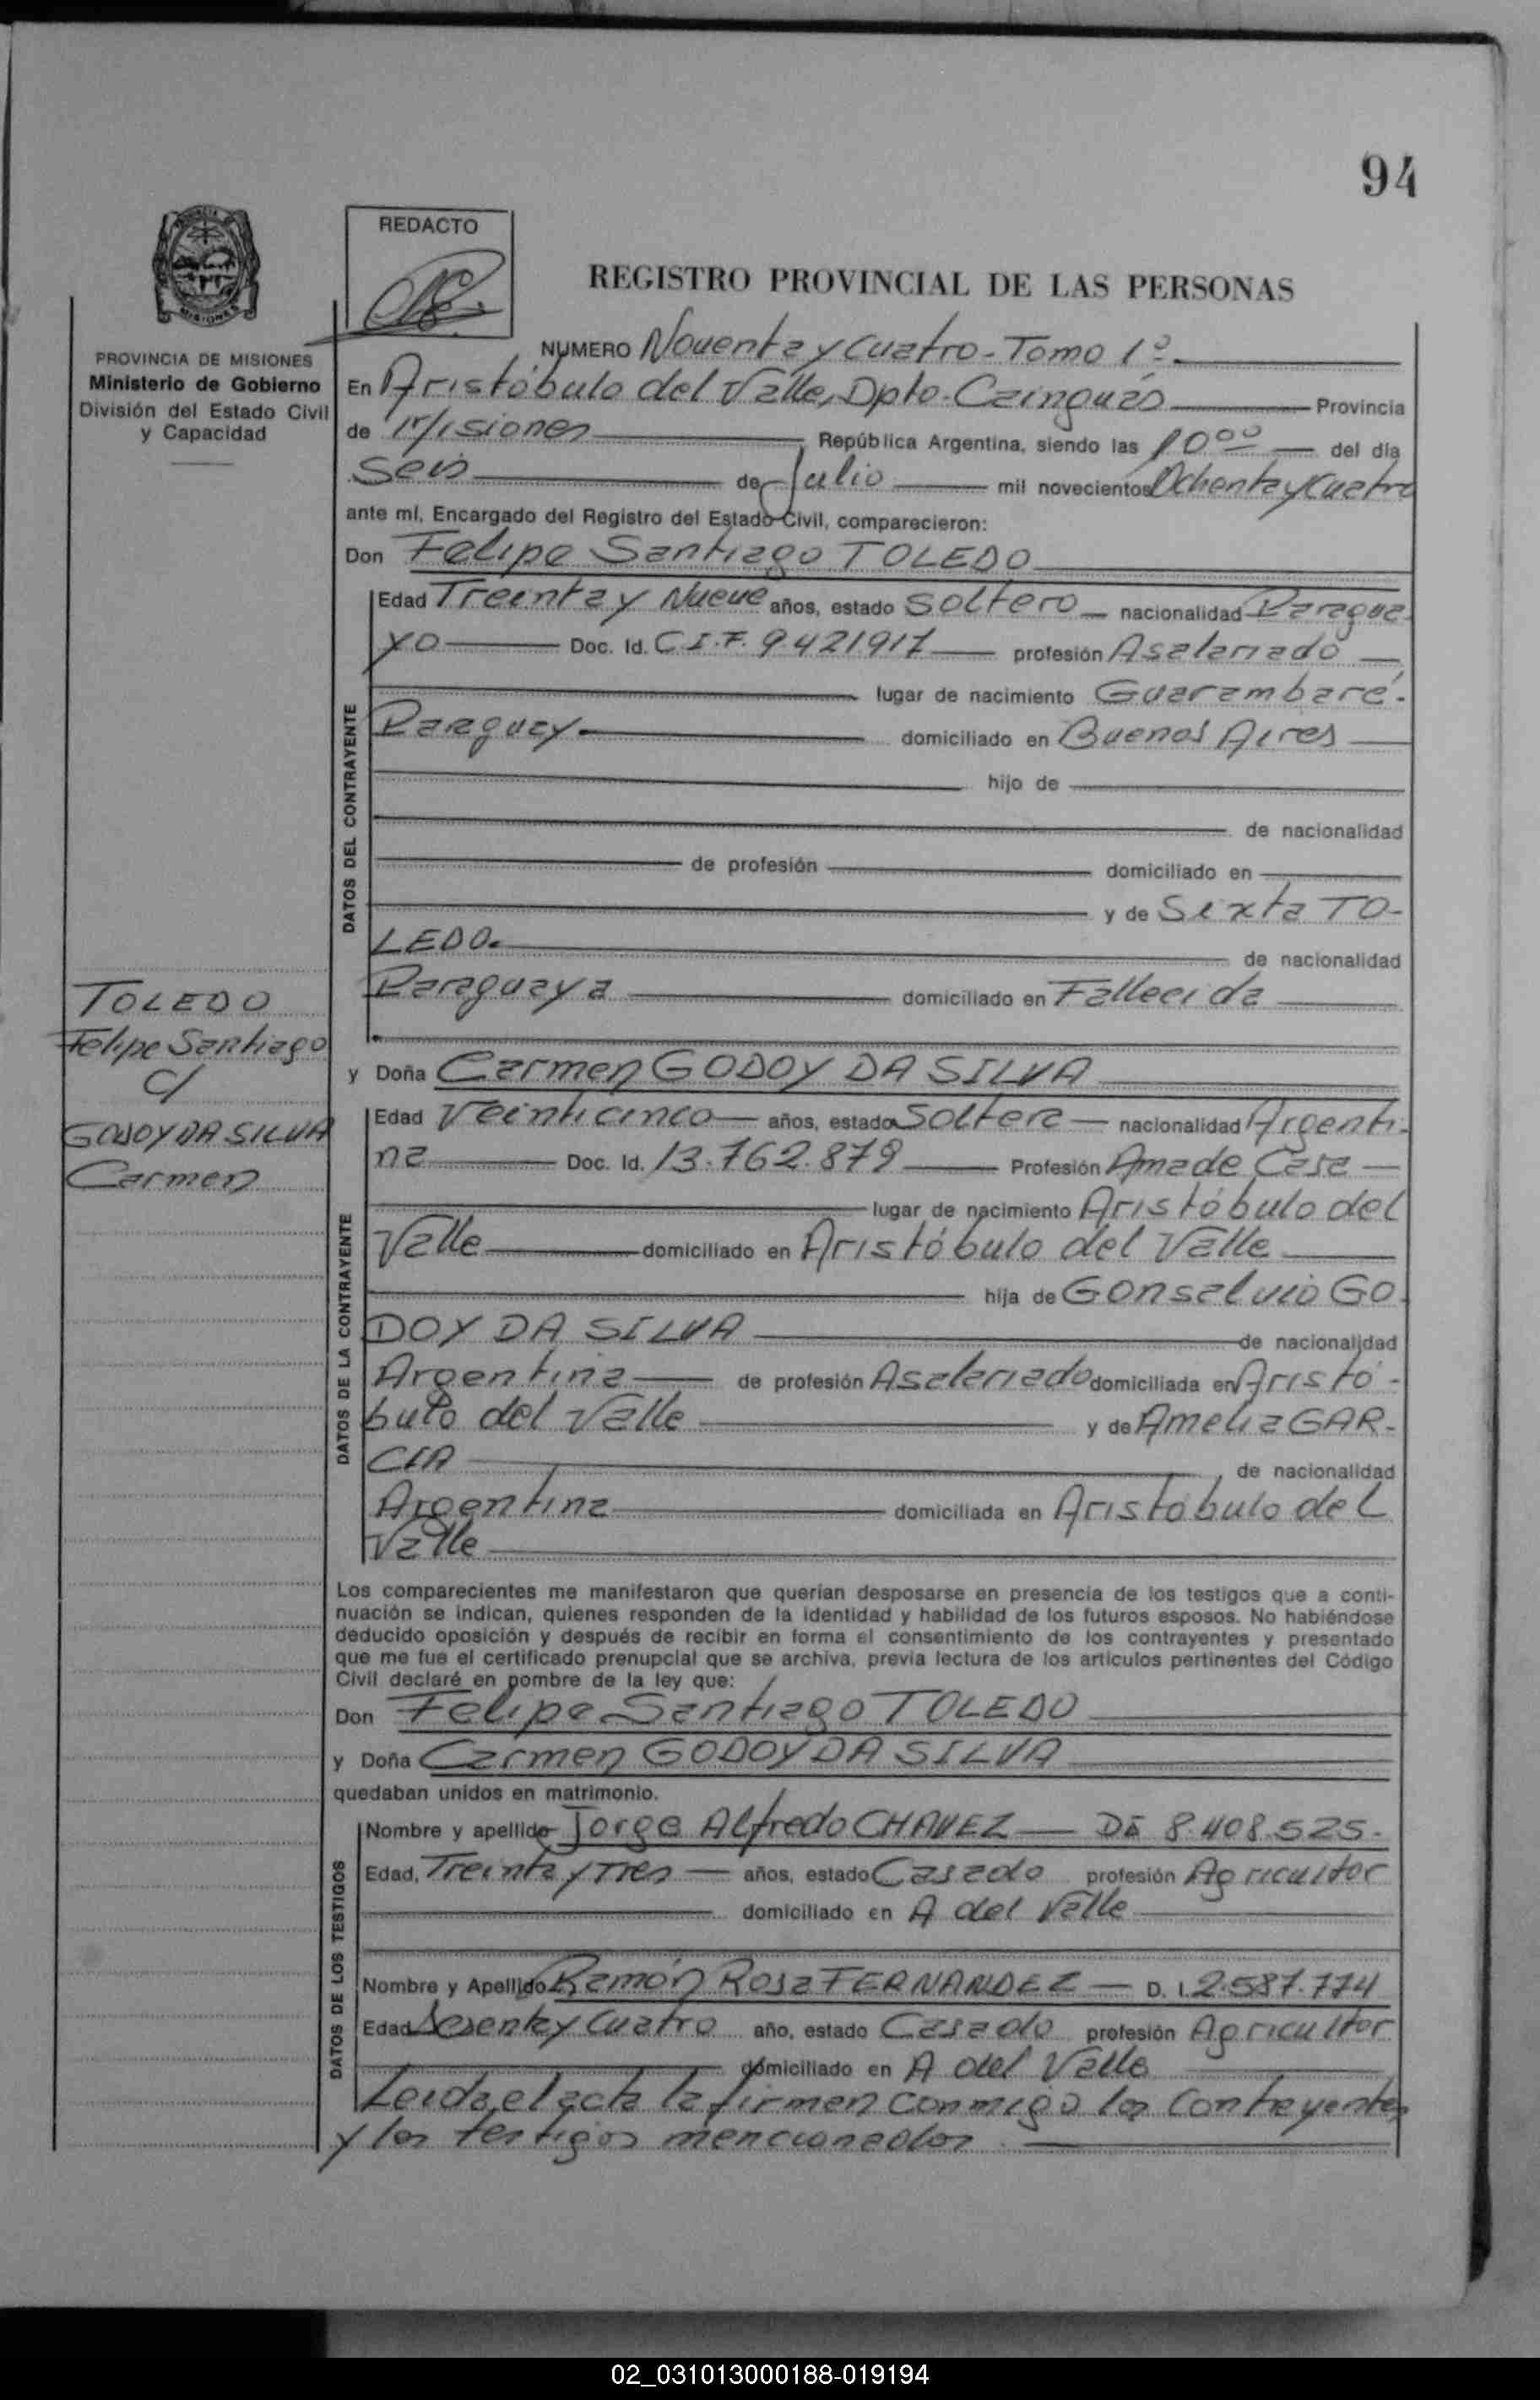 94
REDACTO
REGISTRO PROVINCIAL DE LAS PERSONAS
PROVINCIA DE MISIONES
Ministerio de Gobierno
División del Estado Civil
y Capacidad
NUMERO Noventa y Cuatro - Tomo 1º
En Aristóbulo del Valle, Dpto. Cainguás Provincia
de Misiones República Argentina, siendo las 10ºº del día
Seis de Julio mil novecientos Ochenta y Cuatro
ante mí, Encargado del Registro del Estado Civil, comparecieron:
Don Felipe Santiago TOLEDO
DATOS DEL CONTRAYENTE
Edad Treinta y Nueve años, estado Soltero nacionalidad Paragua-
yo Doc. Id. C.I.F. 9.421917 profesión Asalariado
lugar de nacimiento Guarambaré.
Paraguay. domiciliado en Buenos Aires
hijo de
de nacionalidad
de profesión domiciliado en
y de Sixta TO-
LEDO. de nacionalidad
Paraguaya domiciliado en Fallecida
TOLEDO
Felipe Santiago
c/
GODOY DA SILVA
Carmen
y Doña Carmen GODOY DA SILVA
DATOS DE LA CONTRAYENTE
Edad Veinticinco años, estado Soltera nacionalidad Argenti-
na Doc. Id. 13.762.879 Profesión Ama de Casa
lugar de nacimiento Aristóbulo del
Valle domiciliado en Aristóbulo del Valle
hija de Gonsalvio GO-
DOY DA SILVA de nacionalidad
Argentina de profesión Asalariado domiciliada en Aristó-
bulo del Valle y de Amelia GAR-
CIA de nacionalidad
Argentina domiciliada en Aristóbulo del
Valle
Los comparecientes me manifestaron que querían desposarse en presencia de los testigos que a conti-
nuación se indican, quienes responden de la identidad y habilidad de los futuros esposos. No habiéndose
deducido oposición y después de recibir en forma el consentimiento de los contrayentes y presentado
que me fue el certificado prenupcial que se archiva, previa lectura de los artículos pertinentes del Código
Civil declaré en nombre de la ley que:
Don Felipe Santiago TOLEDO
y Doña Carmen GODOY DA SILVA
quedaban unidos en matrimonio.
DATOS DE LOS TESTIGOS
Nombre y apellido Jorge Alfredo CHAVEZ DI 8.408.525.
Edad, Treinta y Tres años, estado Casado profesión Agricultor
domiciliado en A del Valle
Nombre y Apellido Ramón Rosa FERNANDEZ D. I. 2.587.774
Edad Sesenta y Cuatro año, estado Casado profesión Agricultor
domiciliado en A del Valle
Leida el acta la firman conmigo los Contrayentes
y los testigos mencionados
02_031013000188-019194